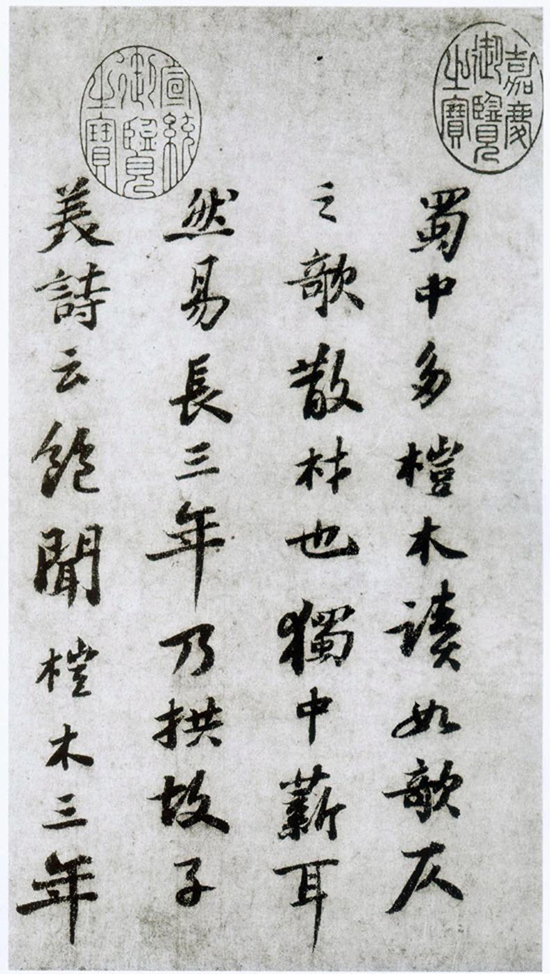 嘉慶
御覽
之寶
蜀中多榿木讀如欹仄
之欹散材也獨中薪耳
宣統
御覽
之寶
然易長三年乃拱故子
美詩云飽聞榿木三年